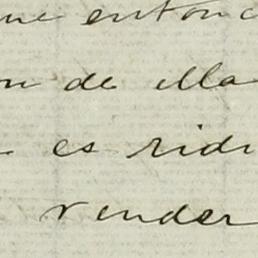 ue entonc
n de ella
es ridi
vender